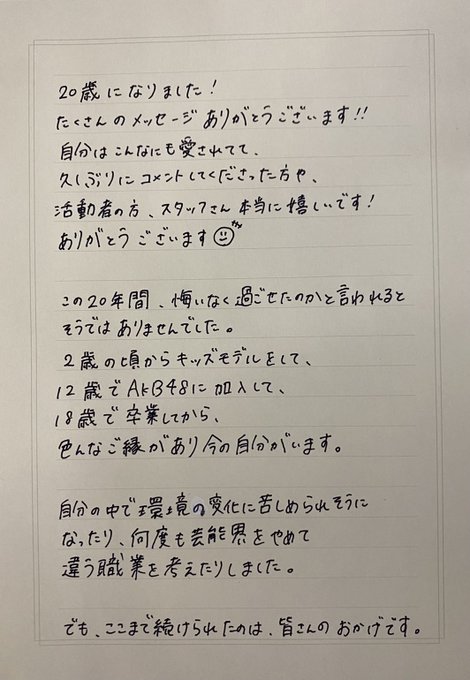 20歳になりました！
たくさんのメッセージありがとうございます!!
自分はこんなにも愛されてて、
久しぶりにコメントしてくださった方や、
活動者の方、スタッフさん本当に嬉しいです！
ありがとうございます
この20年間、悔いなく過ごせたのかと言われると
そうではありませんでした。
2歳の頃からキッズモデルをして、
12歳でAKB48に加入して、
18歳で卒業してから、
色んなご縁があり今の自分がいます。
自分の中で環境の変化に苦しめられそうに
なったり、何度も芸能界をやめて
違う職業を考えたりしました。
でも、ここまで続けられたのは、皆さんのおかげです。